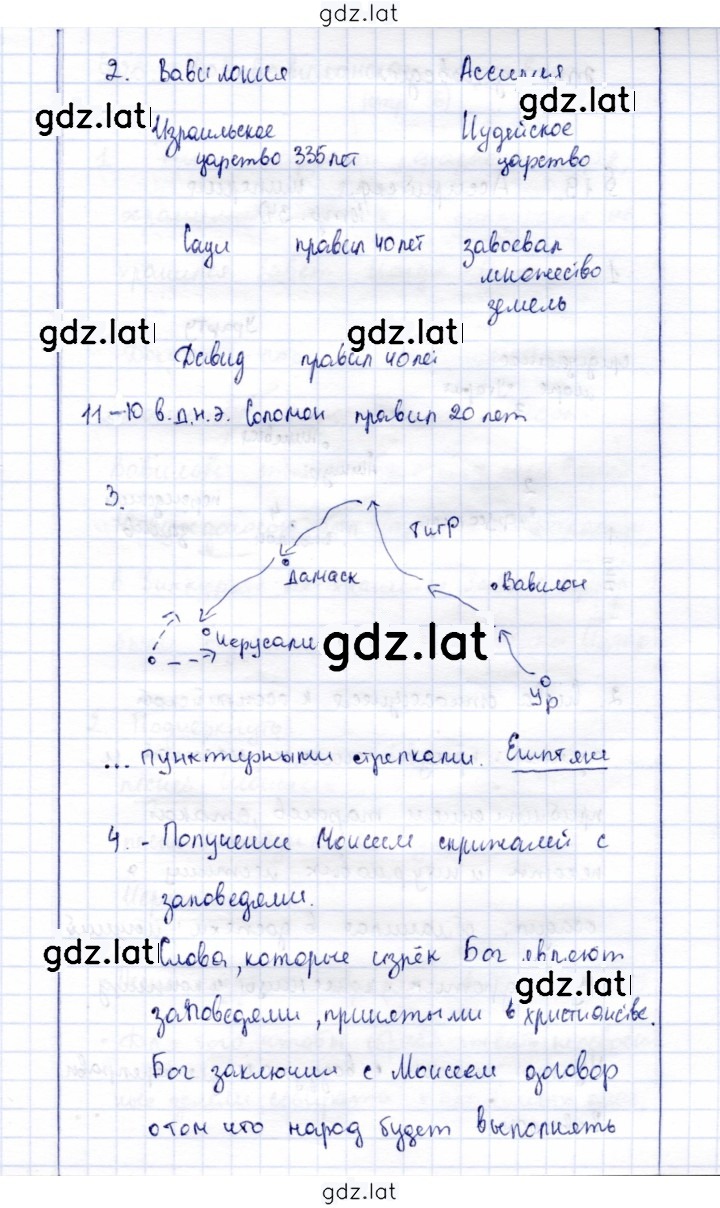 gdz.lat
2. Вавилония Ассирия
gdz.lat gdz.lat
Израильское Иудейское
царство 335 лет царство
Саул правил 40 лет завоевал
множество
земель
gdz.lat gdz.lat
Давид правил 40 лет
11-10 в.д.н.э. Соломон правил 20 лет
3.
Тигр
Дамаск Вавилон
Иерусали
gdz.lat
Ур
... пунктирными стрелками. Египтяне
4. - Получение Моисеем скрижалей с
заповедями.
gdz.lat Слова, которые изрёк Бог являют
gdz.lat
заповедями, принятыми в христианстве.
Бог заключил с Моисеем договор
о том что народ будет выполнять
gdz.lat